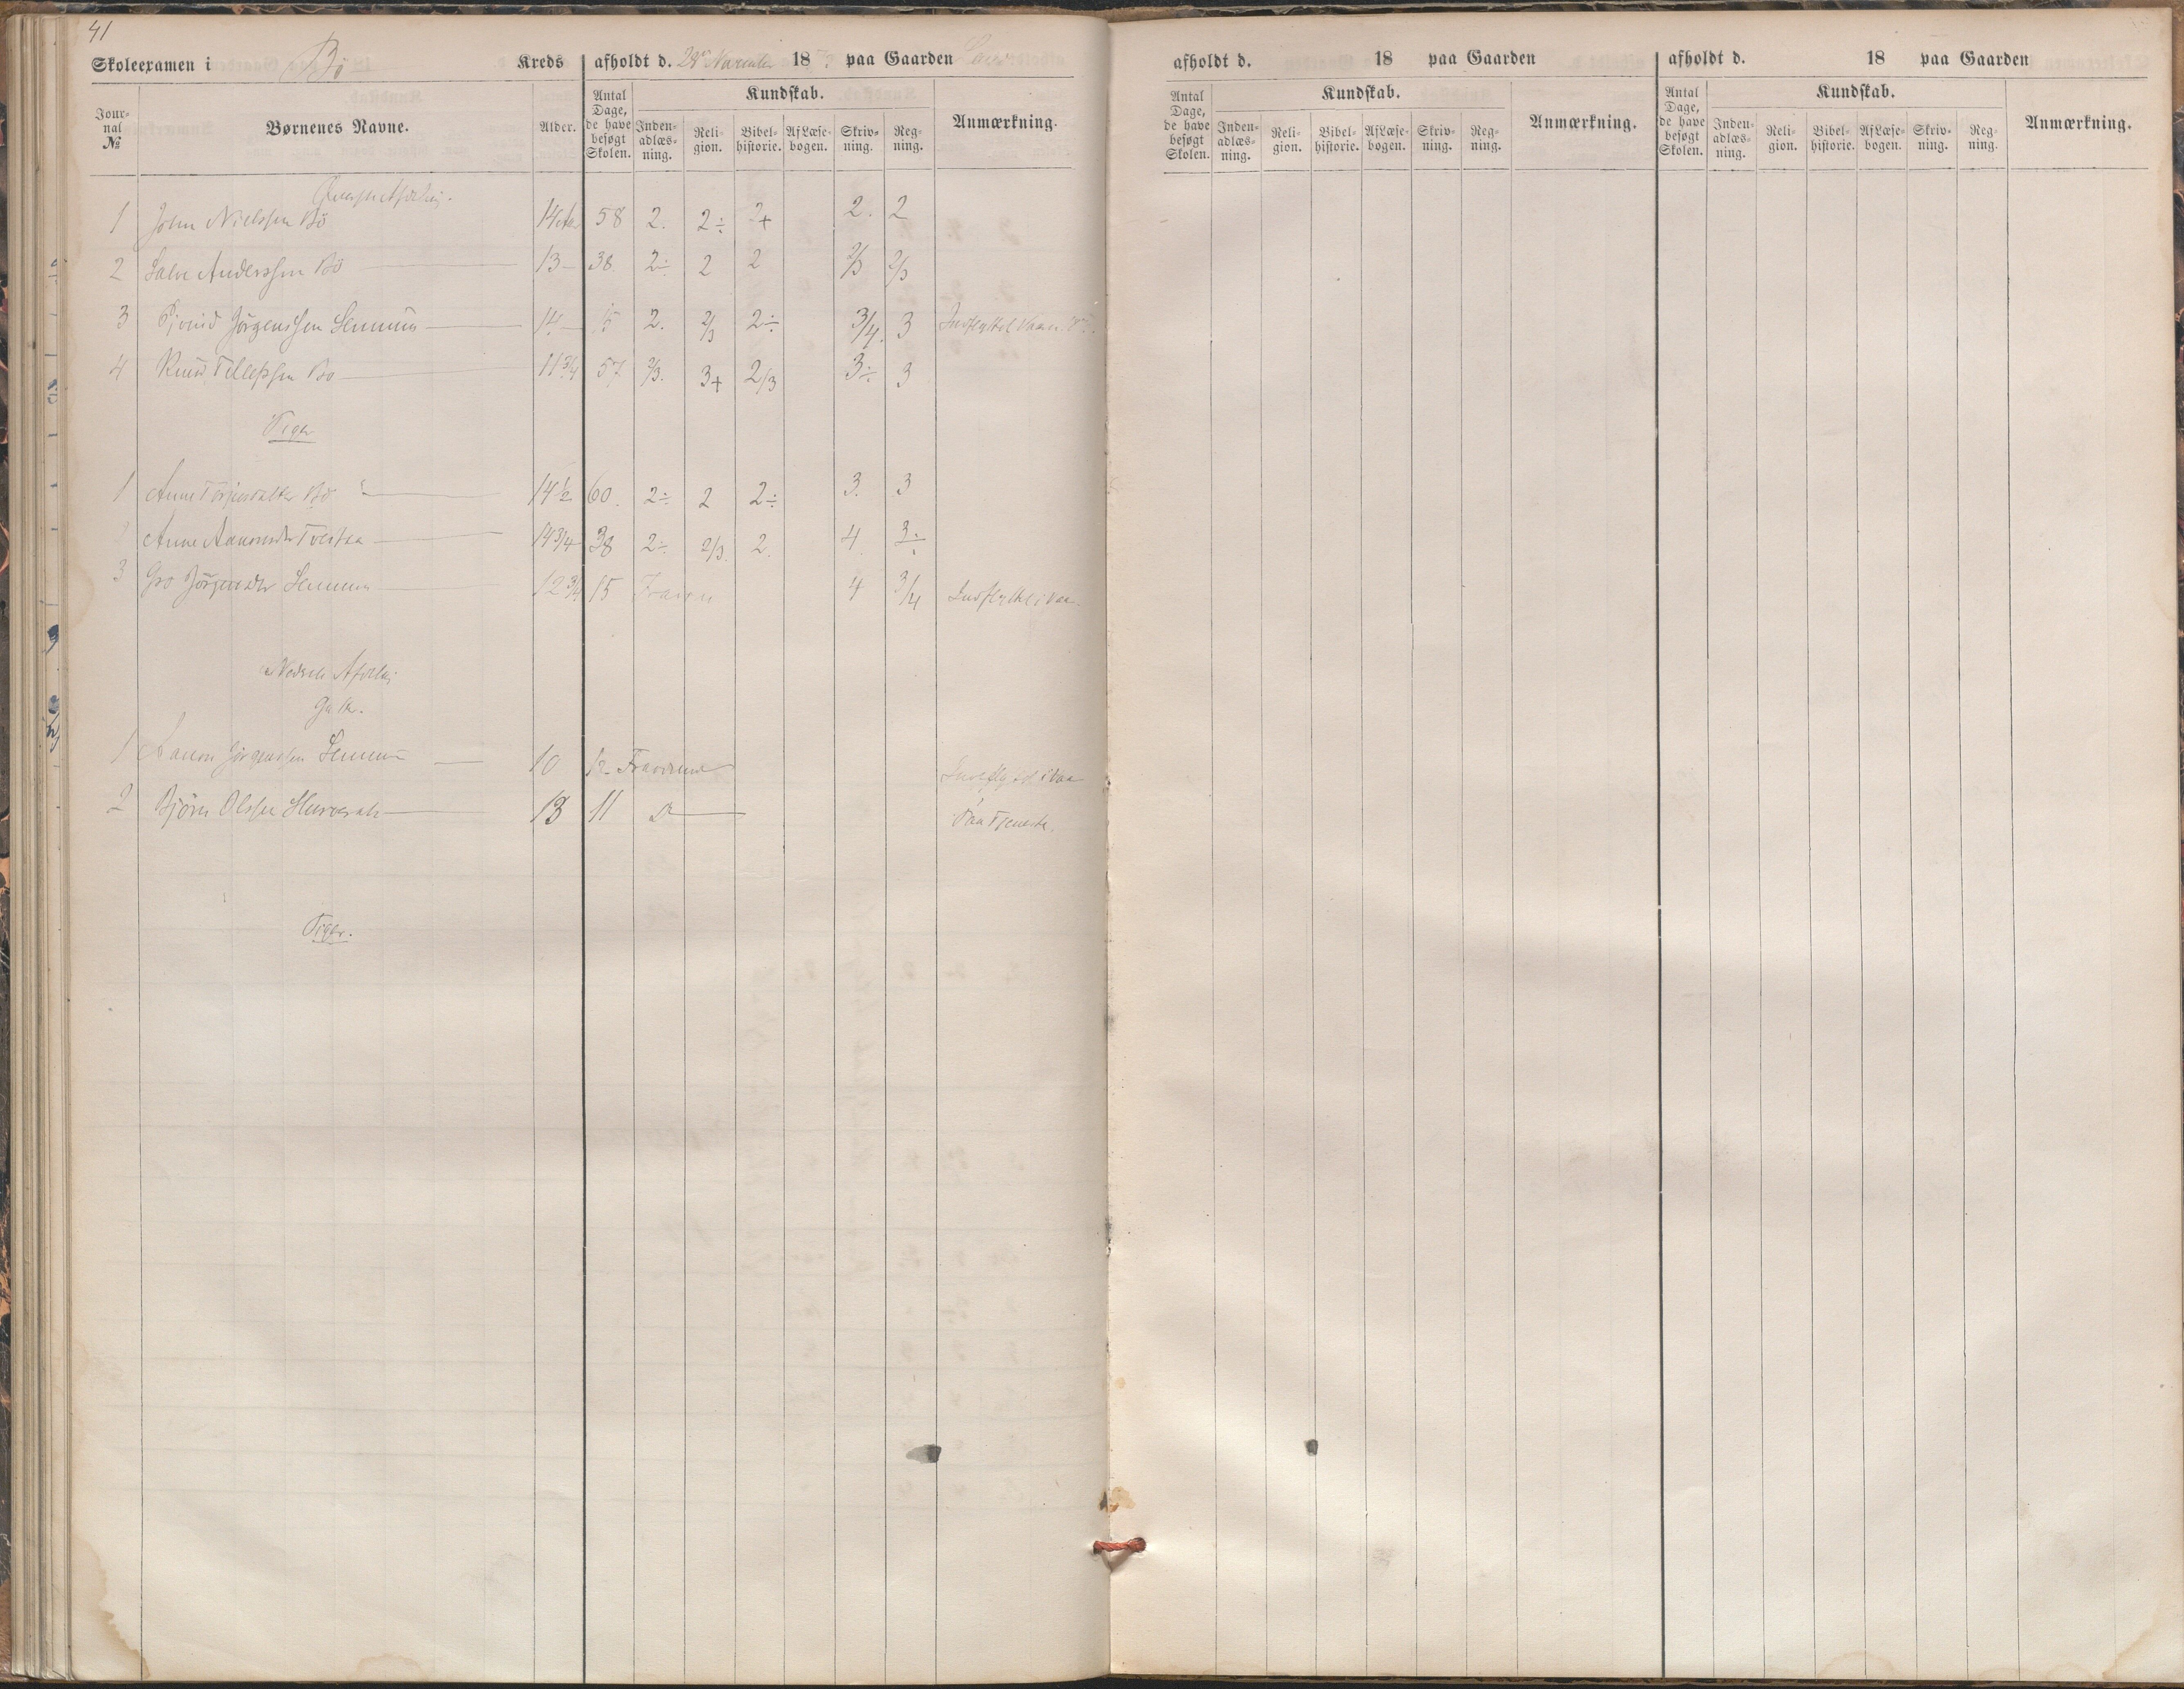 41
Skoleexamen i Bö Kreds afholdt d. November 18 paa Gaarden
Journal No Børnenes Navne. Alder. Antal Dage, de have besøgt Skolen. Kundskab. Indenadlæsning. Religion. Bibelhistorie. Af Læsebogen. Skrivning. Regning. Anmærkning.
1 John Nielssen Bö 14 58 2. 2÷ 2+ 2. 2
2 Salve Anderssen Bö 13 38 2÷ 2 2 2/3 2/3
3 Jörgenssen 14 15 2. 2/3 2÷ 3/4. 3 Indflyttet
4 Knud Tellefssen Bö 11 3/4 57 2/3. 3+ 2/3 3÷ 3
Piger
1 Anne Bö 14 1/2 60. 2÷ 2 2÷ 3. 3
Anne 14 3/4 38 2÷ 2/3. 2. 4. 3÷
3 Gro 12 3/4 15 4 3/4 Indflyttet i Vaar.
Nederste Afdeling
Gutter.
1 Aanon Jörgenssen 10 12 Fraværende Indflyttet i Vaar
2 Björn Olssen 13 11 Do Paa Tjeneste.
Piger.
afholdt d. 18 paa Gaarden
Antal Dage, de have besøgt Skolen. Kundskab. Indenadlæsning. Religion. Bibelhistorie. Af Læsebogen. Skrivning. Regning. Anmærkning.
afholdt d. 18 paa Gaarden
Antal Dage, de have besøgt Skolen. Kundskab. Indenadlæsning. Religion. Bibelhistorie. Af Læsebogen. Skrivning. Regning. Anmærkning.